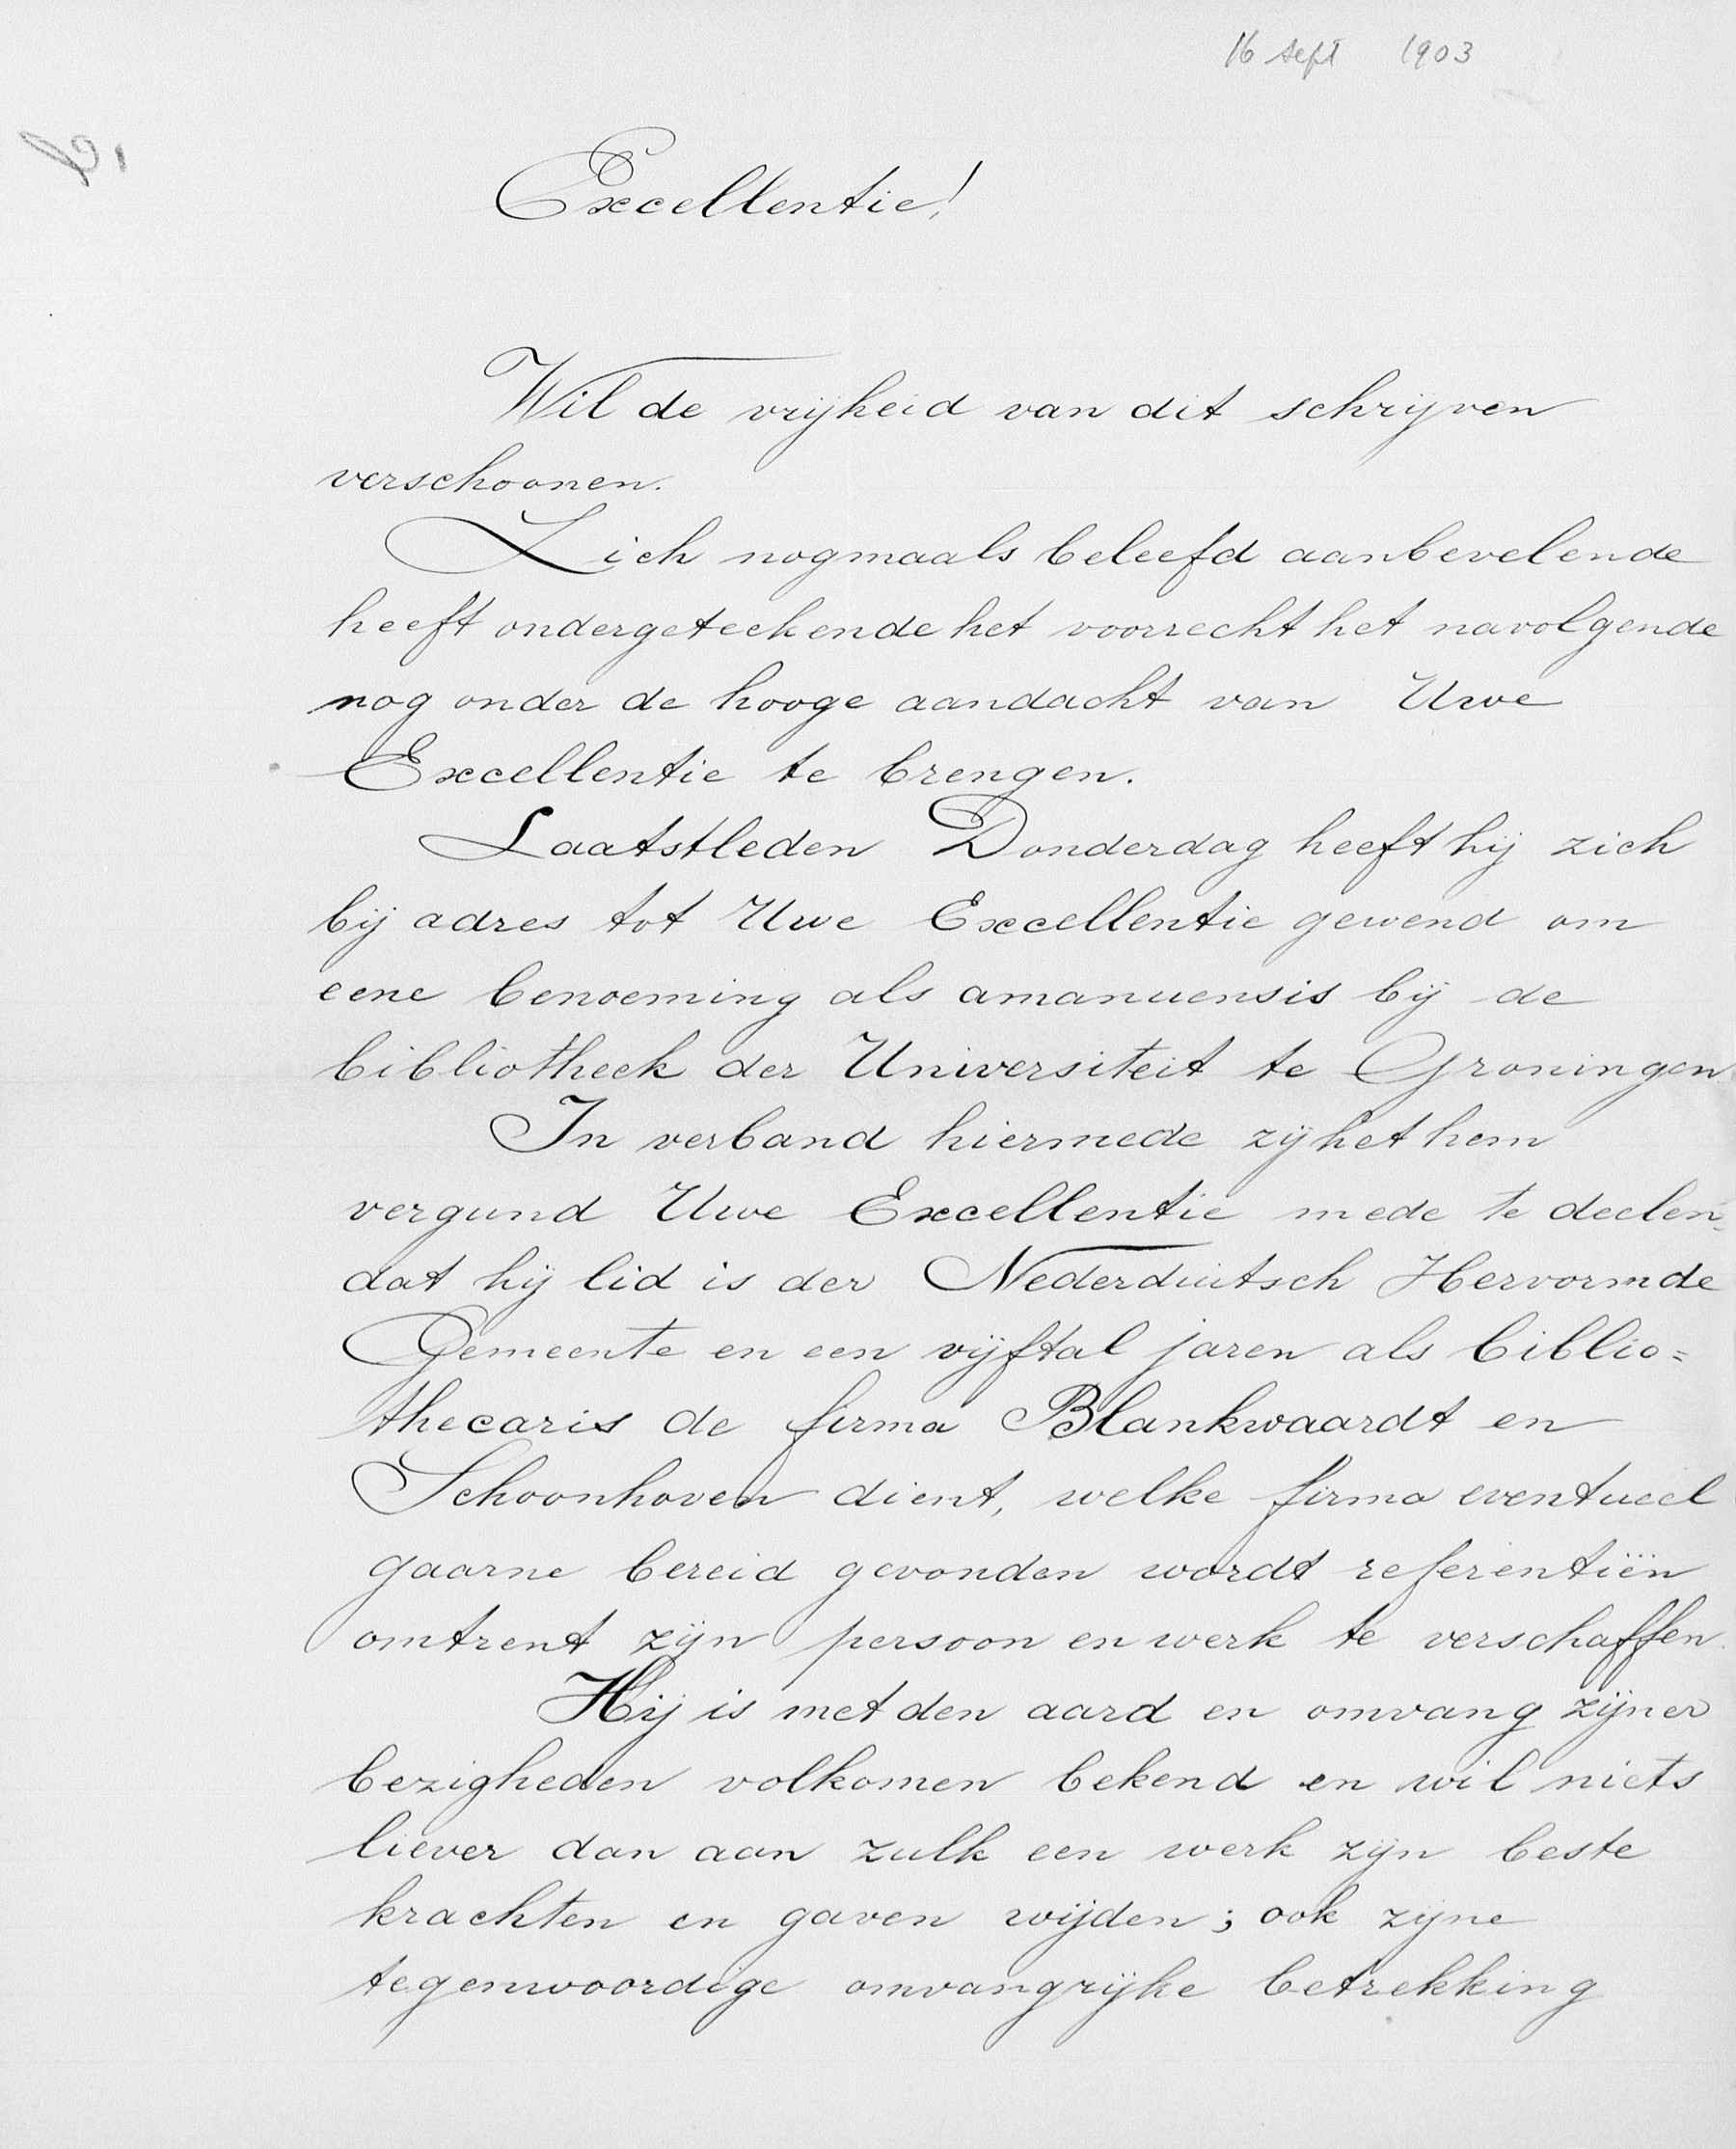 16 Sept 1903
Excellentie!
Wil de vrijheid van dit schrijven
verschoonen.
Zich nogmaals beleefd aanbevelende
heeft ondergeteekende het voorrecht het navolgende
nog onder de hooge aandacht van Uwe
Excellentie te brengen.
Laatstleden Donderdag heeft hij zich
bij adres tot Uwe Excellentie gewend om
eene benoeming als amanuensis bij de
bibliotheek der Universiteit te Groningen.
In verband hiermede zij het hem
vergund Uwe Excellentie mede te deelen,
dat hij lid is der Nederduitsch Hervormde
Gemeente en een vijftal jaren als biblio=
thecaris de firma Blankwaardt en
Schoonhoven dient, welke firma eventueel
gaarne bereid gevonden wordt referentiën
omtrent zijn persoon en werk te verschaffen.
Hij is met den aard en omvang zijner
bezigheden volkomen bekend en wil niets
liever dan aan zulk een werk zijn beste
krachten en gaven wijden; ook zijne
tegenwoordige omvangrijke betrekking